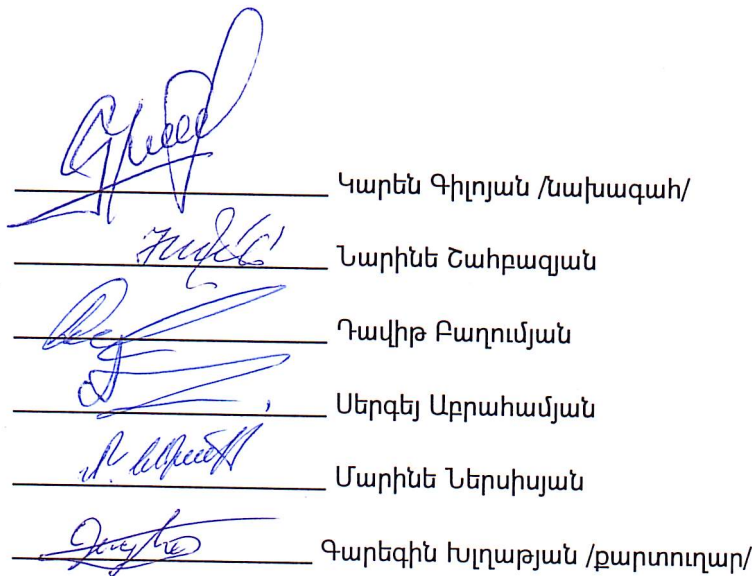 Կարեն Գիլոյան /նախագահ/
Նարինե Շահբազյան
Դավիթ Բաղումյան
Սերգեյ Աբրահամյան
Մարինե Ներսիսյան
Գարեգին Խլղաթյան /քարտուղար/